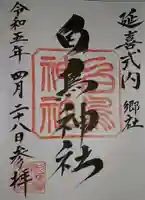 延喜式内 郷社
白鳥神社
令和五年四月二十八日参拝